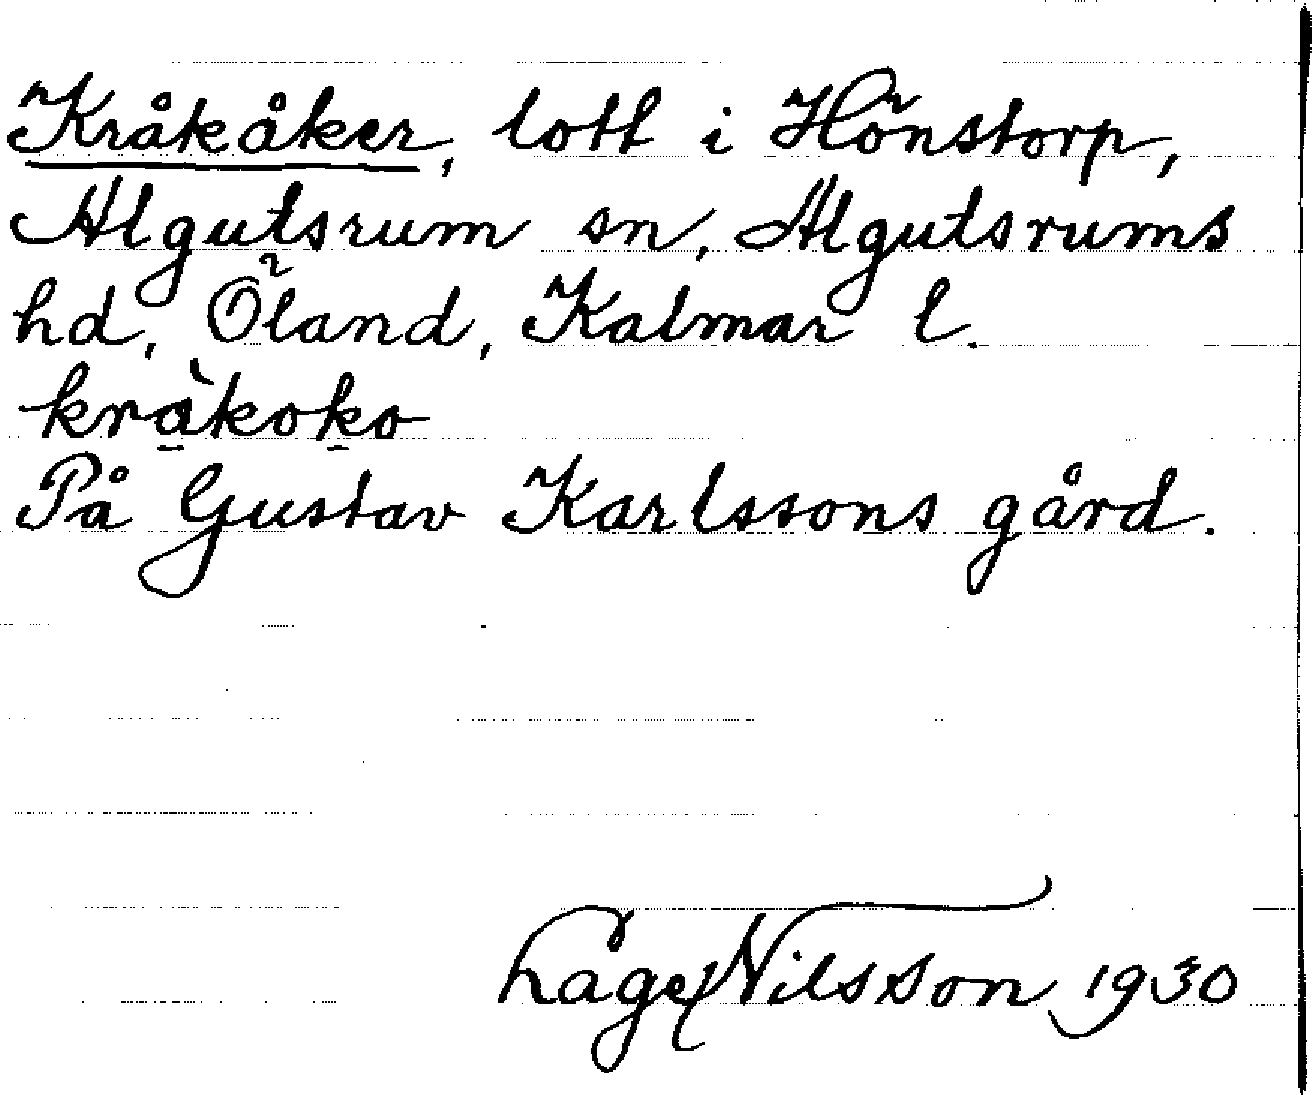 Kråkåker, lott i Hönstorp,
Algutsrum sn, Algutsrums
hd, Öland, Kalmar l.
kràkoko
På Gustav Karlssons gård.
Låge Nilsson 1930